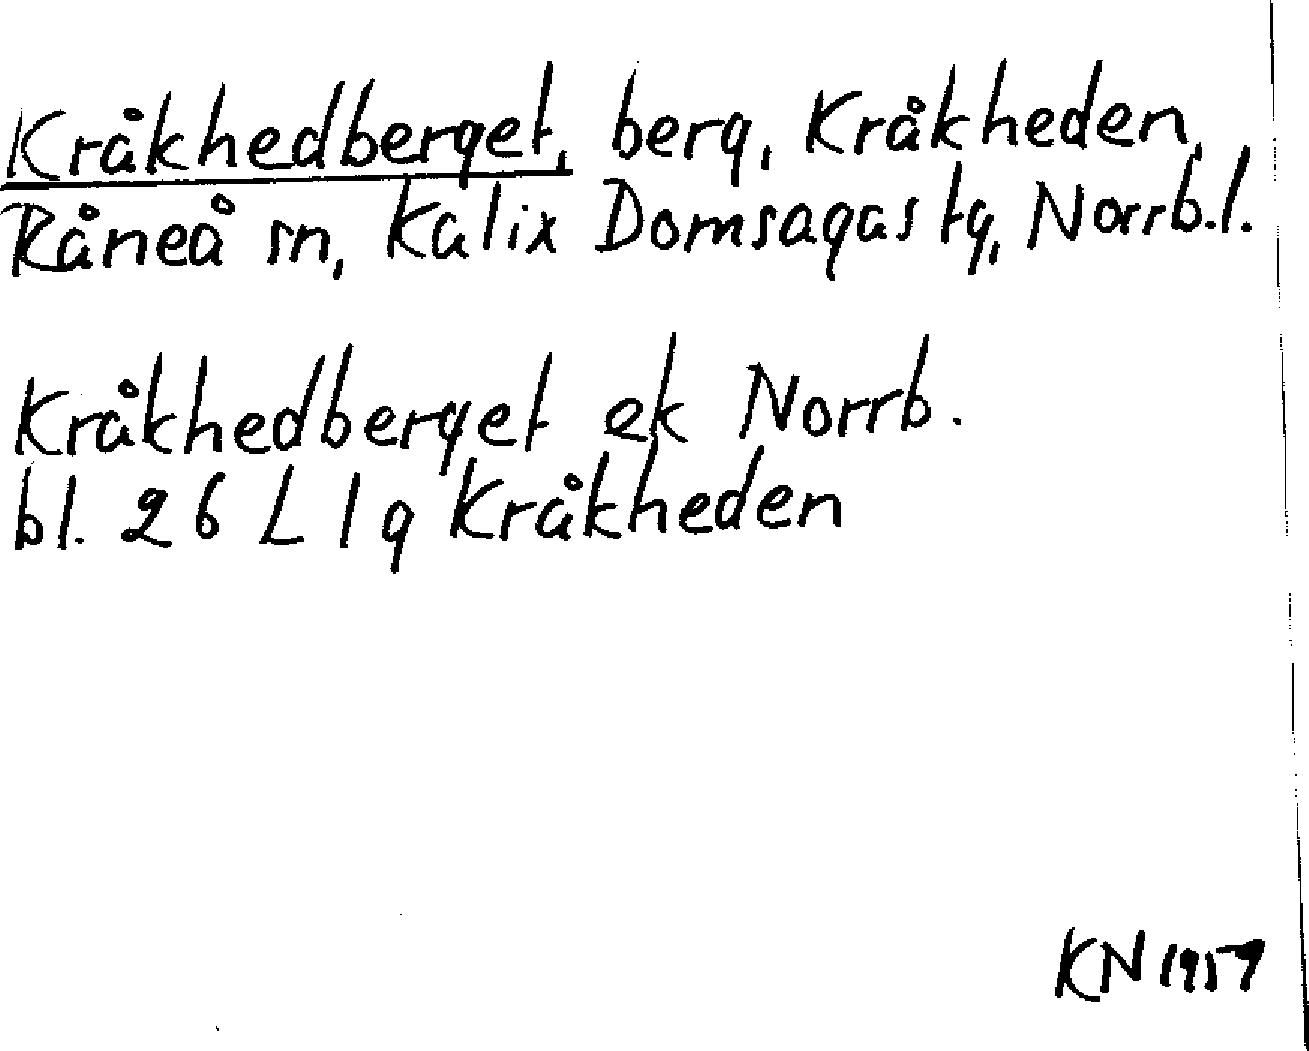 Kråkhedberget, berg, Kråkheden,
Råneå sn, Kalix Domsagas tg, Norrb.l.
Kråkhedberget ek Norrb.
bl. 26 L l g Kråkheden
KN 1957